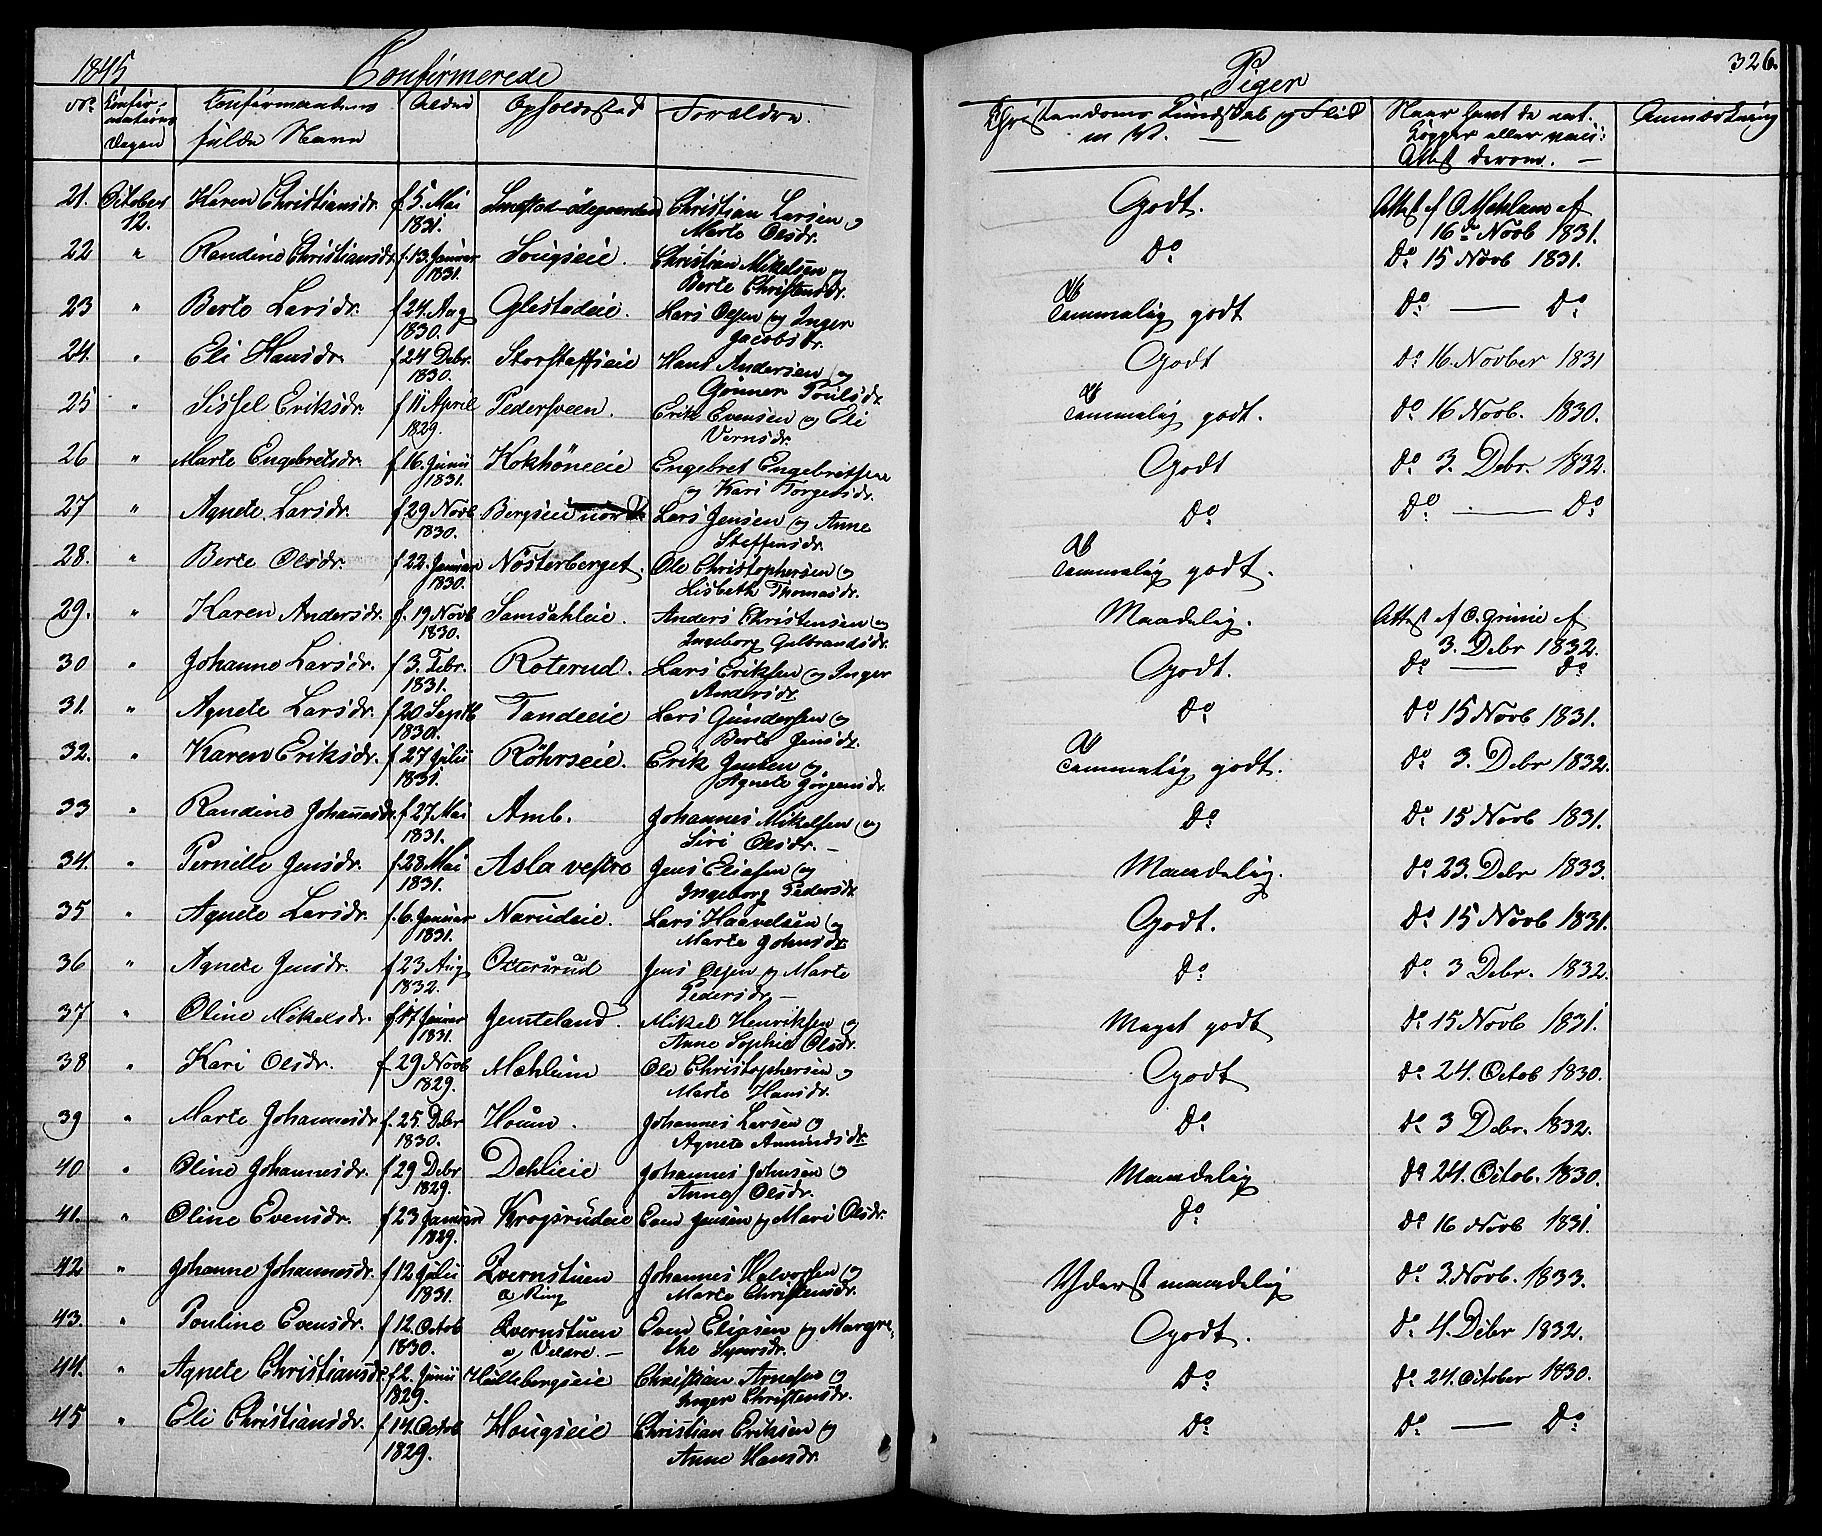 1845 Confirmerede
No. Confirmations Dagen Konfirmantens fulde Navn Alder Opholdssted Forældre.
21. October 12. Karen Christiansdr. f. 5. Mai 1831. Christian Larsen og Marte Olsdr.
22 " Randine Christiansdr. f. 13. Januar 1831. Christian Mikelsen og Berte Christensdr.
23 " Berte Larsdr. f. 24. Aug 1830. Glestadeie. Lars Olsen og Inger Jacobsdr.
24. " Eli Hansdr. f 24 Debr. 1830. Hans Andersen og Gønner Poulsdr.
25 " Sissel Eriksdr. f 11 April 1829. Pedersveen. Erik Evensen og Eli
26 " Marte Engebretsdr. f 16. Junii 1831. Engebret Engebretsen og Kari Torgersdr.
27 " Agnete Larsdr. f 29 Novb 1830. Bergseie Lars Jensen og Anne Steffensdr.
28. " Berte Olsdr. f 22. Januar 1830. Nösterberget. Ole Christophersen og Lisbeth Thomasdr.
29. " Karen Andersdr. f. 19 Novb 1830. Samsahleie. Anders Christensen og Ingeborg Gulbrandsdr.
30 " Johanne Larsdr. f 3. Febr. 1831. Roterud. Lars Eriksen og Inger Andersdr.
31. " Agnete Larsdr. f 20 Septb 1830. Tandeeie Lars Gundersen og Berte Jensdr.
32. " Karen Eriksdr. f 27 Julii 1831. Röhrseie. Erik Jensen og Agnete Jørgensdr.
33 " Randine Johanesdr. f 27. Mai 1831. Amb. Johannes Mikelsen og Siri Olsdr. –
34. " Pernille Jensdr. f. 28. Mai 1831. Asla vestre Jens Eliasen og Ingeborg Pedersdr.
35 " Agnete Larsdr. f. 6. Januar 1831. Narudeie. Lars Haavelsen og Marte Johnsdr.
36 " Agnete Jensdr. f 23 Aug 1832. Jens Olsen og Marte Pedersdr. –
37 " Oline Mikelsdr. f 17 Januar 1831. Jemteland. Mikel Henriksen og Anne Sophie Olsdr.
38 " Kari Olsdr. f 29 Novb 1829. Mæhlum Ole Christophersen og Marte Hansdr.
39 " Marte Johannesdr f. 25. Debr 1830. Johannes Larsen og Agnete Amundsdr.
40 " Oline Johannesdr. f 29 Debr 1829. Dehlieie Johannes Johnsen og Anne Olsdr.
41. " Oline Evensdr. f 23 Januar 1829. Krogsrudeie Even Jensen og Mari Olsdr.
42 " Johanne Johannesdr. f 12 Julii 1831. Qvernstuen a Ring Johannes Halvorsen og Marte Christensdr.
43. " Pouline Evensdr. f 12. Octob 1830. Qvernstuen a Veldre. – Even Eliasen og Margrethe
44. " Agnete Christiansdr. f 2. Junii 1829. Hullebergseie Christian Arnesen og Inger Christensdr.
45 " Eli Christiansdr. f 14. Octob 1829. Hougseie Christian Eriksen og Anne Hansdr.
Piger 326.
Christendoms Kundskab og Flid m V. — Naar havt de nat. Kopper eller vacc: Attest derom. – Anmærkning
Godt. Attest af O Mehlum af 16de Novb 1831.
Do Do 15 Novb 1831.
Temmelig godt Do — Do
Godt Do 16. Novber 1831
Temmelig godt. Do 16 Novb. 1830.
Godt Do 3. Debr. 1832.
Do Do — Do
Temmelig godt.
Maadelig. Attest af C. Grimie af 3. Debr 1832.
Godt. Do — Do
Do Do 15 Novb 1831.
Temmelig godt. Do 3. Debr 1832.
Do Do 15 Novb 1831.
Maadelig. Do 23. Debr 1833.
Godt. Do 15 Novb 1831.
Do Do 3 Debr. 1832.
Meget godt Do 15 Novb 1831.
Godt Do 24. Octob 1830.
Do Do 3 Debr. 1832.
Maadelig Do 24. Octob. 1830.
Do Do 16 Novb 1831
Yderst maadelig Do 3. Novb. 1833.
Godt. Do 4. Debr 1832.
Do Do 24. October 1830.
Do Do — Do